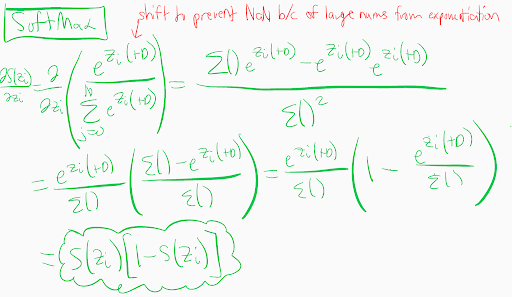 SoftMax
shift to prevent NaN b/c of large nums from exponentiation
∂S(zᵢ)/∂zᵢ = ∂/∂zᵢ ( e^{zᵢ(+D)} / Σ_{j=0}^{N} e^{zᵢ(+D)} ) = ( Σ() e^{zᵢ(+D)} - e^{zᵢ(+D)} e^{zᵢ(+D)} ) / Σ()²
= e^{zᵢ(+D)} / Σ() ( ( Σ() - e^{zᵢ(+D)} ) / Σ() ) = e^{zᵢ(+D)} / Σ() ( 1 - e^{zᵢ(+D)} / Σ() )
= S(zᵢ)[1-S(zᵢ)]